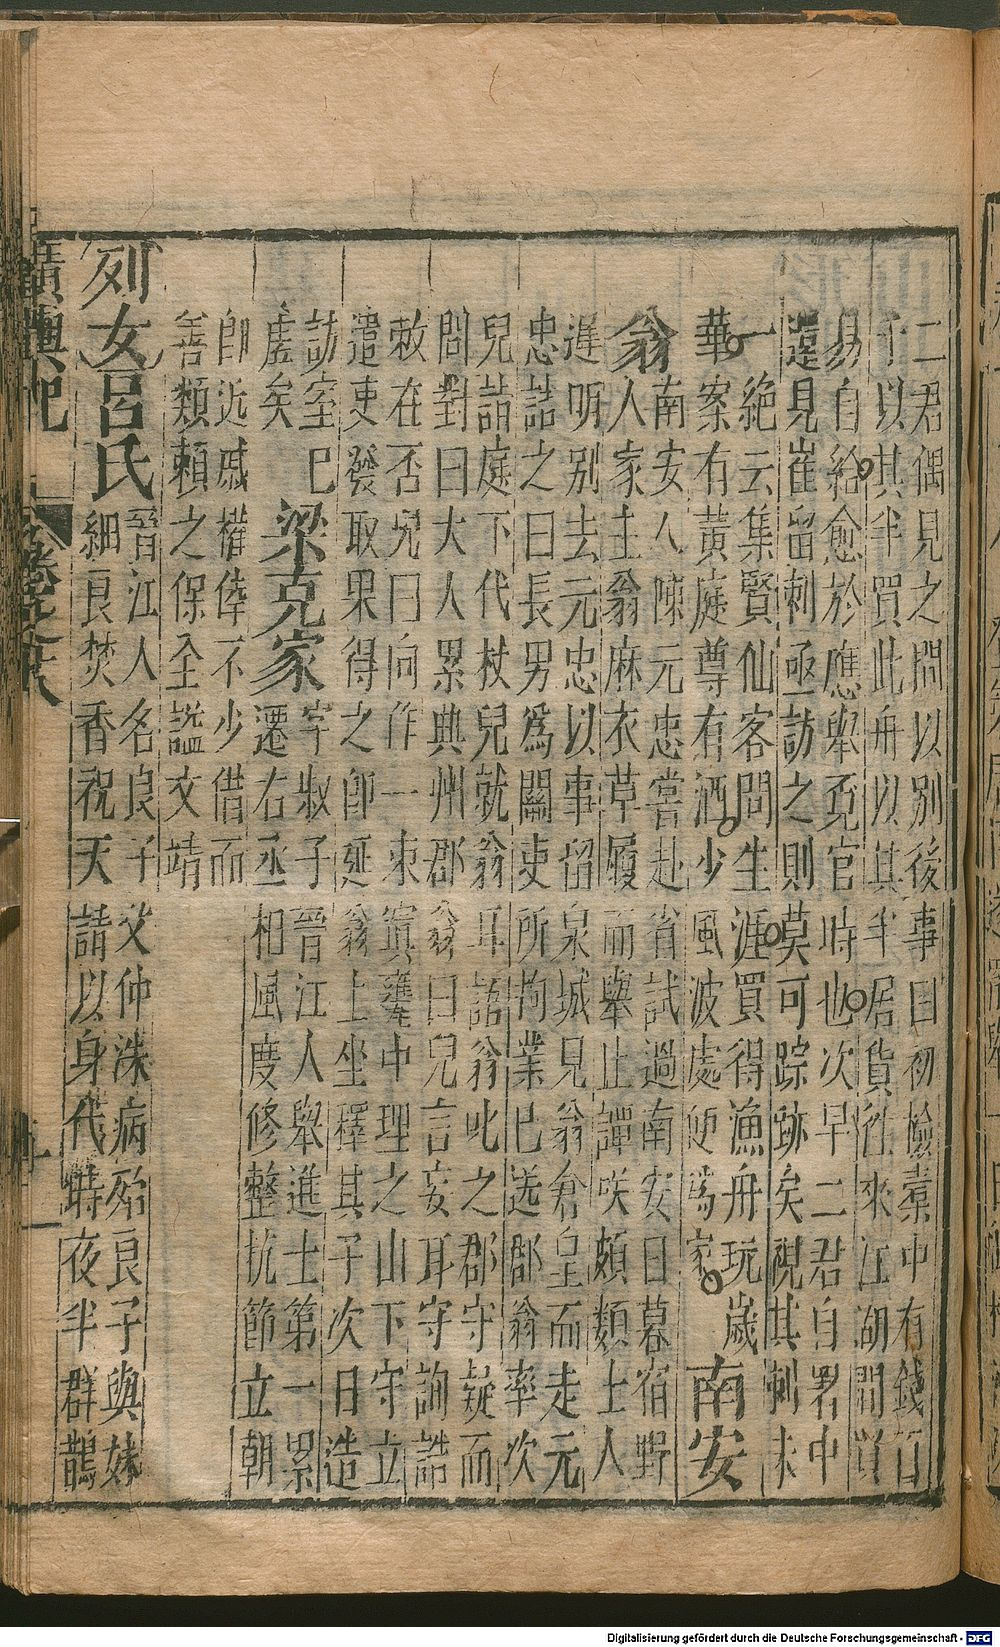 二君偶見之問以別後事曰初檢橐中有錢百
千以其半買此舟以其半居貨往來江湖間貿
易自給愈於應舉覓官時也次早二君自署中
還見崔留刺亟訪之則莫可踪跡矣視其刺末
一絕云集賢仙客問生涯買得漁舟玩歲
華案有黃庭尊有酒少風波處便爲家南安
翁南安人陳元忠嘗赴省試過南安日暮宿野
人家主翁麻衣草履而舉止譚咲頗類士人
遲明別去元忠以事留泉城見翁倉皇而走元
忠詰之曰長男爲關吏所拘業已送郡翁率次
兒詣庭下代杖兒就翁耳語翁叱之郡守疑而
問對曰大人累典州郡翁曰兒言妄耳守詢誥
敕在否兒曰向作一束寘甕中理之山下守立
遣吏發取果得之卽延翁上坐釋其子次日造
訪室已
虛矣梁克家字叔子晉江人舉進士第一累
遷右丞相風度修整抗節立朝
卽近戚權倖不少借而
善類賴之保全謚文靖
列女呂氏晉江人名良子父仲洙病殆良子與妹
細良焚香祝天請以身代時夜半群鵲
廣輿記
卷之十八
Digitalisierung gefördert durch die Deutsche Forschungsgemeinschaft - DFG